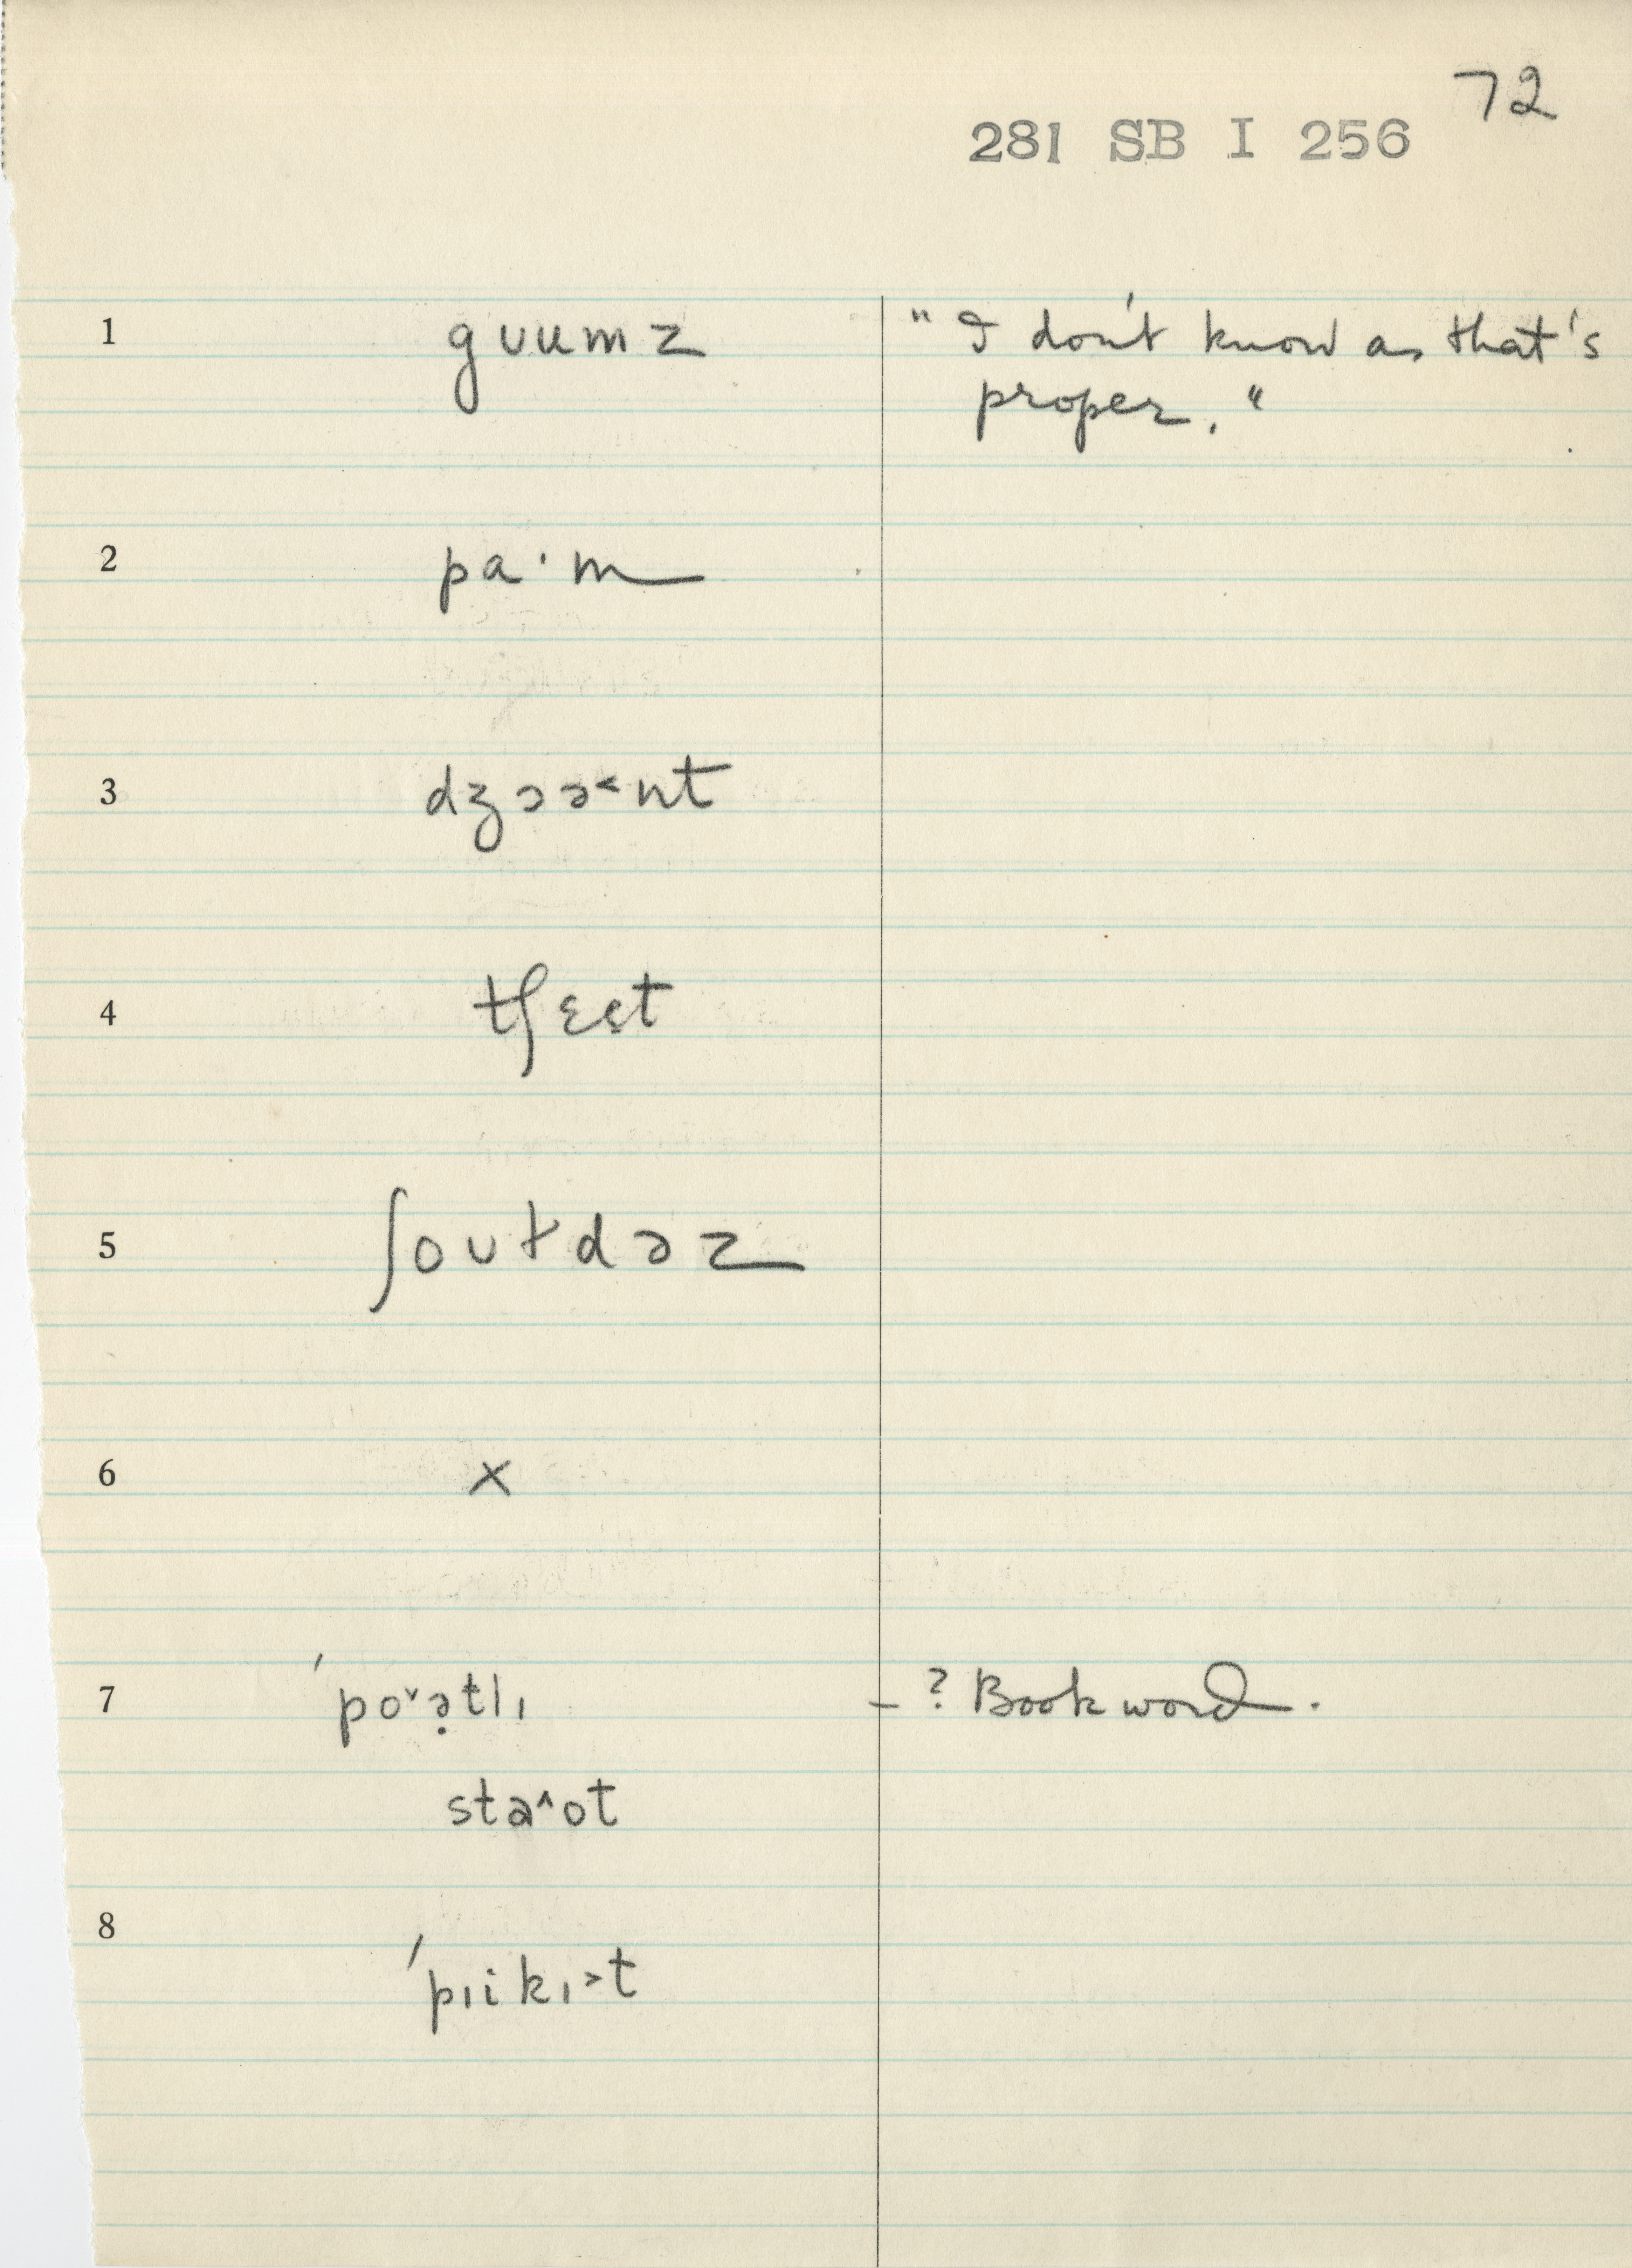 72
281 SB I 256
1 gʊumz "I don't know as that's
proper."
2 pa·m
3 dʒɔə˂nt
4 tʃɛɛt
5 ʃoʊɫdəz
6 x
7 ˈpo˅ə̣tlɪ – ? Book word.
sta˄ot
8 ˈpɪikɪ˃t